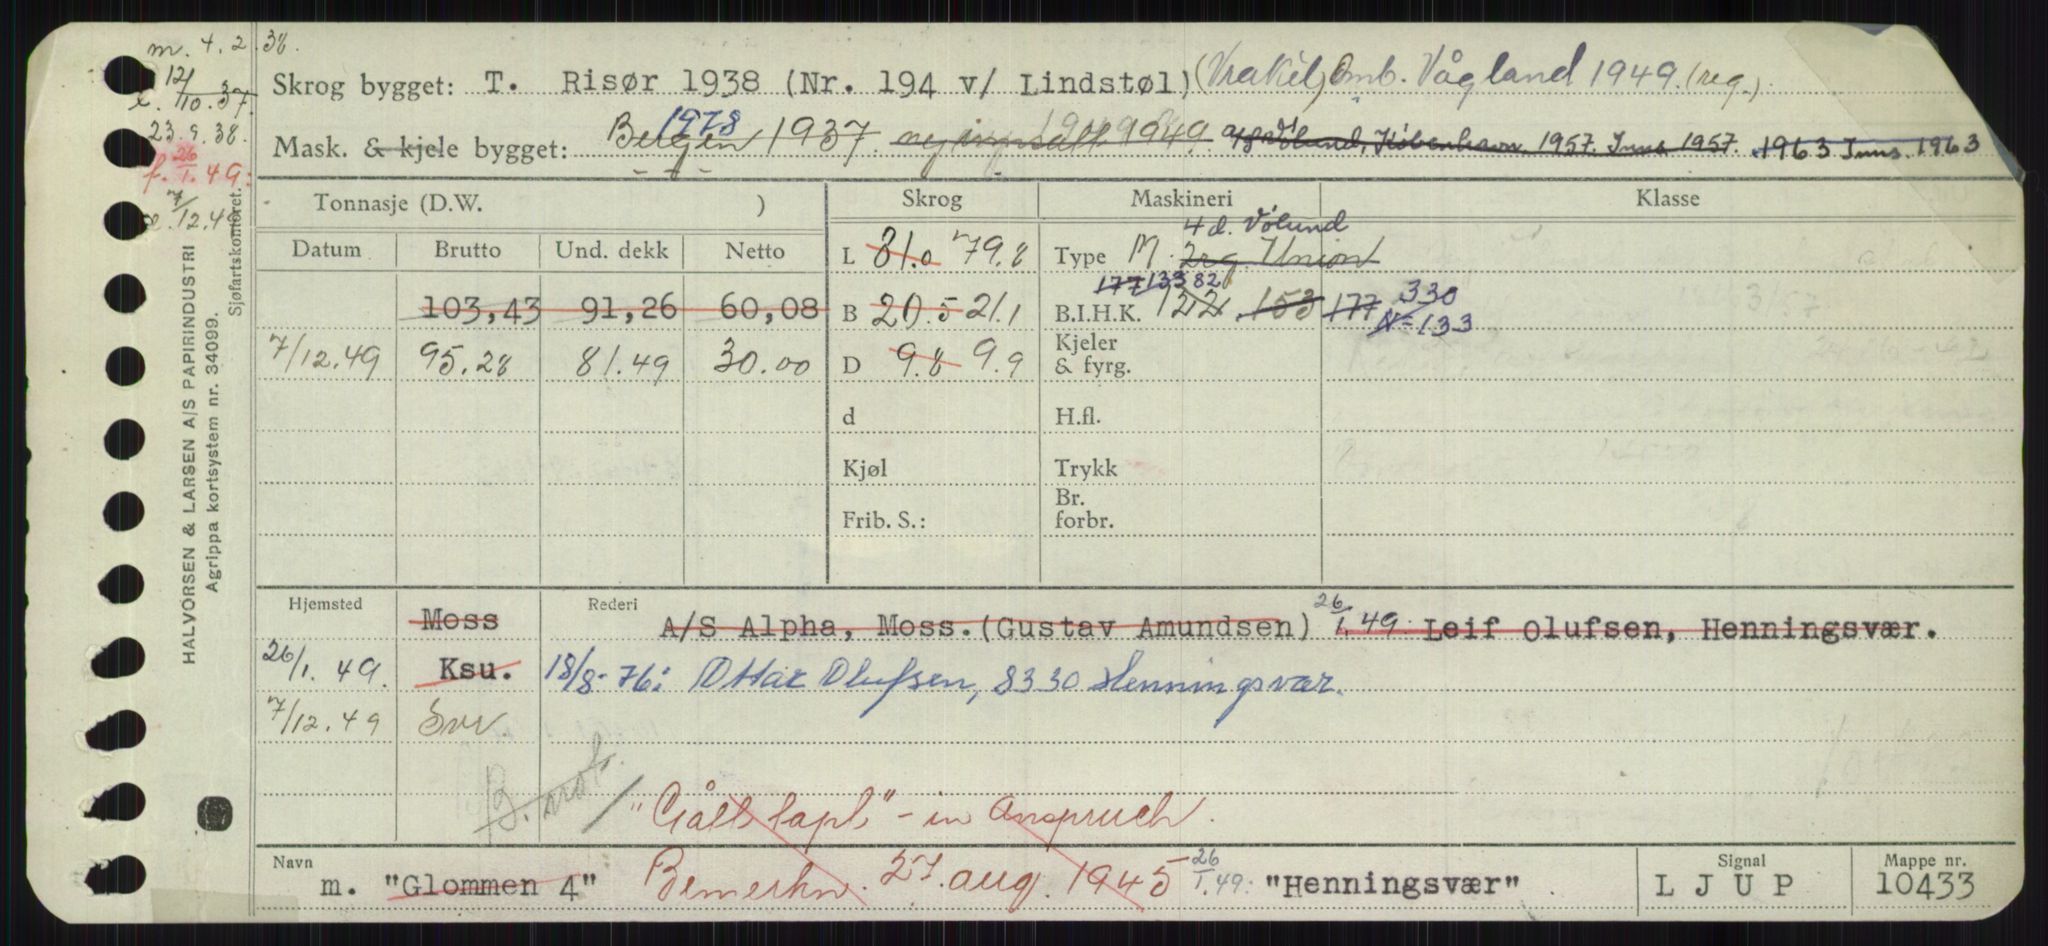 m. 4.2.38.
12/10.37.
23.9.38.
f. 26/1.49.
7/12.49
HALVORSEN & LARSEN A/S PAPIRINDUSTRI
Agrippa kortsystem nr. 34099.
Sjøfartskontoret.
Skrog bygget: T. Risør 1938 (Nr. 194 v/ Lindstøl) (Vrakét) Omb. Vågland 1949. (reg.)
Mask. & kjele bygget: Bergen 1978 1937. ny innsatt 1949. Vølund, København 1957. Inns. 1957. 1963 Inns. 1963
Tonnasje (D.W. ) Skrog Maskineri Klasse
Datum Brutto Und. dekk Netto
L 81.0 79.8
Type M. 2rg. Union 4 d. Vølund
103,43 91,26 60,08
B 20.5 21.1
B.I.H.K. 122 153 177 133 82 177 330 N=133
7/12.49 95.28 81.49 30.00
D 9.8 9.9
Kjeler & fyrg.
d
H.fl.
Kjøl
Trykk
Frib. S.:
Br. forbr.
Hjemsted Rederi
Moss A/S Alpha, Moss. (Gustav Amundsen) 26/1.49. Leif Olufsen, Henningsvær.
26/1.49. Ksu. 18/8-76: Ottar Olufsen, 8330 Henningsvær.
7/12.49 Svv.
B. not.
"Gått tapt" - in Anspruch.
Navn m. "Glommen 4" Bemerkn. 27. aug. 1945 26/1.49: "Henningsvær"
Signal LJUP
Mappe nr. 10433